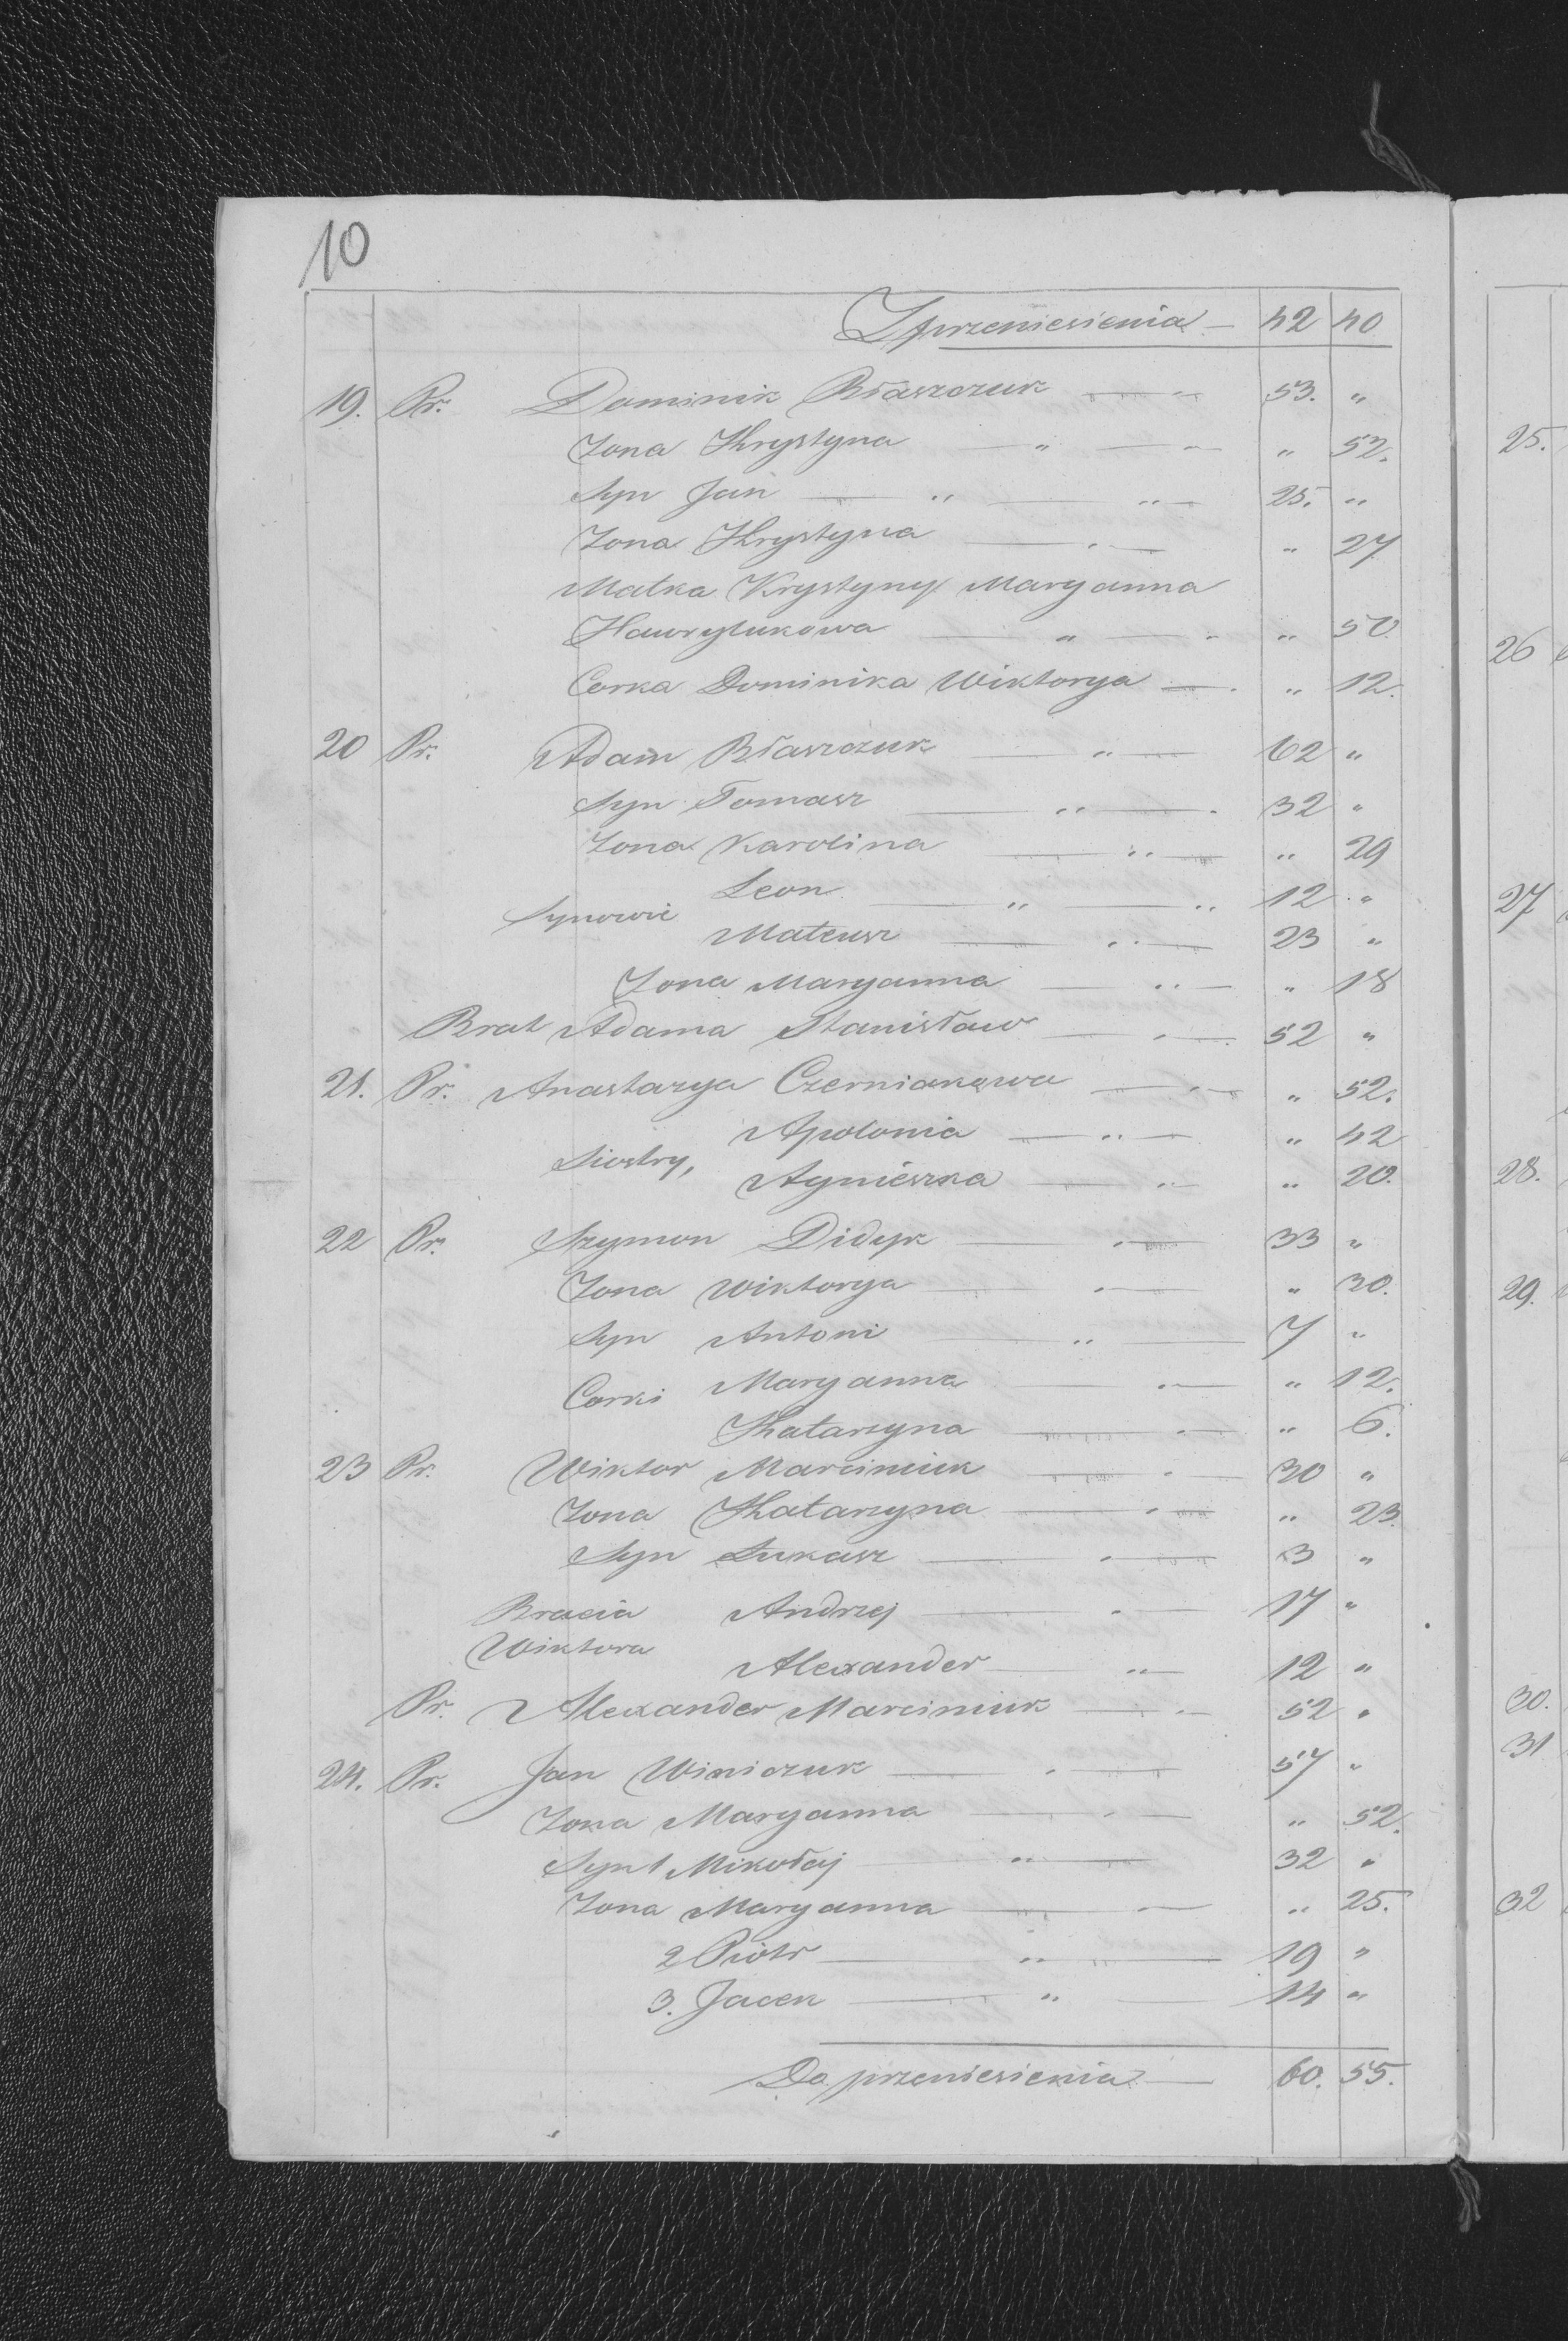 10
Z przeniesienia — 42 40
19. Pr. Dominik Błaszczuk — „ 53. „
Zona Krystyna „ — „ „ 52.
Syn Jan — „ — „ 25. „
Zona Krystyna — „ — „ 27
Matka Krystyny Maryanna
Hawrylukowa — „ — „ „ 50.
Corka Dominika Wiktorya — „ 12.
20 Pr. Adam Błaszczuk — „ — 62 „
Syn Tomasz — „ — 32 „
Zona Karolina — „ — „ 29
Synowie Leon — „ — „ 12 „
Mateusz — „ — 23 „
Zona Maryanna — „ — „ 18
Brat Adama Stanisław — „ — 52 „
21. Pr. Anastazya Czerniakowa — „ — „ 52.
Siostry, Apolonia — „ — „ 42
Agnieszka — „ — „ 20.
22 Pr. Szymon Didyk — „ — 33 „
Zona Wiktorya — „ — „ 30.
Syn Antoni — „ — 7 „
Corki Maryanna — „ — „ 12.
Katarzyna — „ — „ 6.
23 Pr. Wiktor Marciniuk — „ — 30 „
Zona Katarzyna — „ — „ 23.
Syn Łukasz — „ — 3 „
Bracia Andrzej — „ — 17 „
Wiktora Alexander — „ — 12 „
Pr. Alexander Marciniuk — „ — 52 „
24. Pr. Jan Winiczuk — „ — 57 „
Zona Maryanna — „ — „ 52.
Syn 1 Mikołaj „ — 32 „
Zona Maryanna — „ — „ 25.
2 Piotr — „ — 19 „
3. Jacek — „ — 14 „
Do przeniesienia — 60. 55.
25.
26
27
28.
29.
30.
31
32